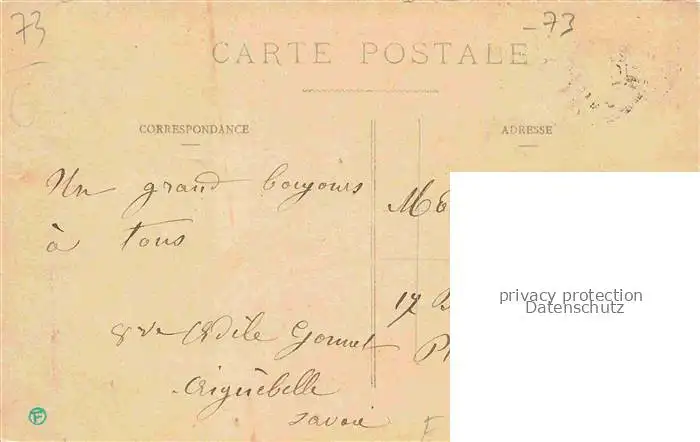 73
73
CARTE POSTALE
CORRESPONDANCE
ADRESSE
Un grand boujours
à tous
Odile Gonnet
Aiguebelle
Savoie
17
privacy protection
Datenschutz
F
F